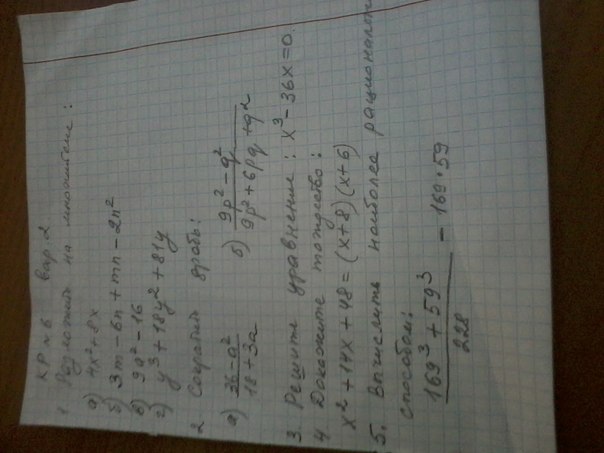 КР № 6 вар. 2
1 Разложить на множители:
а) 4x²+8x
б) 3m-6n+mn-2n²
в) 9a²-16
г) y³+18y²+81y
2 Сократить дробь:
а) 36-a² / 18+3a б) 9p²-q² / 9p²+6pq+q²
3. Решите уравнение: x³-36x=0.
4 Докажите тождество:
x²+14x+48=(x+8)(x+6)
5. Вычислить наиболее рационалот
способом:
169³+59³ / 228 - 169·59